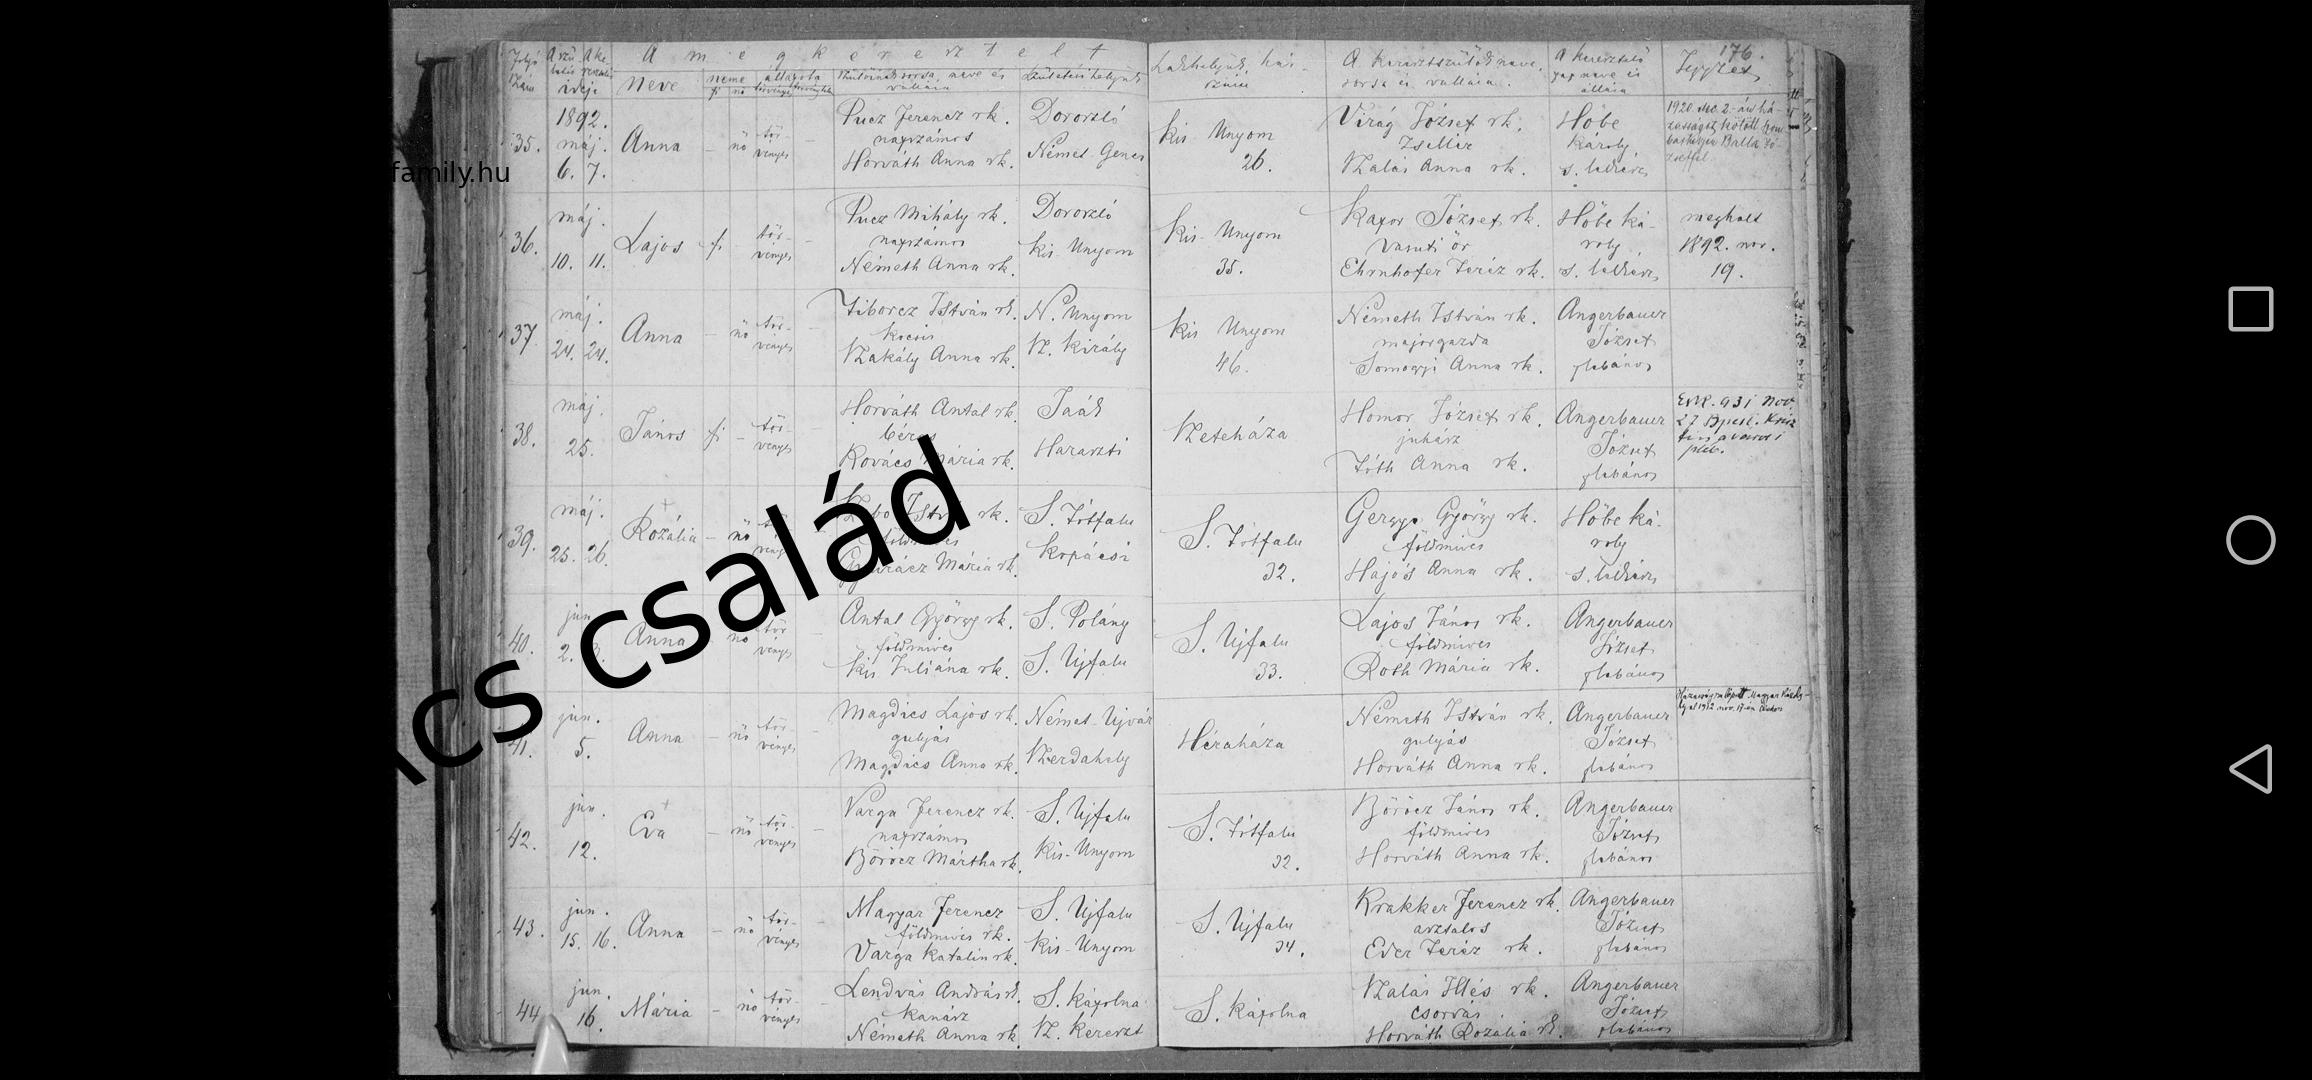 176.
Folyó szám
A szü letés ideje
A ke resztelés
A megkeresztelt
Neve
neme
fi nő
állapota
törvényes
Szülőinek sorsa, neve és vallása
Születéshelyük
Lakhelyük, házszám
A keresztszülők neve, sorsa és vallása.
A keresztelő pap neve és állása
Jegyzet
35.
1892. máj.
6. 7.
Anna
nő
törvényes
Pucz Ferencz rk.
napszámos
Horváth Anna rk.
Doroszló
Német Gencs
Kis Unyom
26.
Virág József rk.
zsellér
Szalai Anna rk.
Höbe
Károly
s. lelkész
1920 dec. 2-án há-
zasságot kötött Szom
bathelyen Balla Jó-
zseffel
family.hu
36.
máj.
10. 11.
Lajos
fi
törvényes
Pucz Mihály rk.
napszámos
Németh Anna rk.
Doroszló
Kis-Unyom
Kis-Unyom
35.
Kapor József rk.
vasuti őr
Ehrnhofer Teréz rk.
Höbe Ká-
roly
s. lelkész
meghalt
1892. nov.
19.
37.
máj.
24. 24.
Anna
nő
törvényes
Tiborcz István rk.
kocsis
Szakály Anna rk.
N. Unyom
Sz. Király
Kis Unyom
46.
Németh István rk.
majorgazda
Somogyi Anna rk.
Angerbauer
József
plébános
38.
máj.
25.
János
fi
törvényes
Horváth Antal rk.
béres
Kovács Mária rk.
Jaák
Haraszti
Szeteháza
Homor József rk.
juhász
Tóth Anna rk.
Angerbauer
József
plébános
931 Nov
27 Bpest. Krisz
tinavárosi
pléb.
39.
máj.
25. 26.
Rozália
nő
István rk.
földmíves
Mária rk.
S. Tótfalu
Kopácsi
S. Tótfalu
32.
György rk.
földmíves
Hajós Anna rk.
Höbe Ká-
roly
s. lelkész
40.
jun.
2. 3.
Anna
nő
törvényes
Antal György rk.
földmíves
Kis Juliána rk.
S. Polány
S. Ujfalu
S. Ujfalu
33.
Lajos János rk.
földmíves
Roth Mária rk.
Angerbauer
József
plébános
41.
jun.
5.
Anna
nő
törvényes
Magdics Lajos rk.
gulyás
Magdics Anna rk.
Német-Ujvár
Szerdahely
Héraháza
Németh István rk.
gulyás
Horváth Anna rk.
Angerbauer
József
plébános
Házasságra lépett Magyar
1912 nov.
42.
jun.
12.
Éva
nő
törvényes
Varga Ferencz rk.
napszámos
Böröcz Mártha rk.
S. Ujfalu
Kis-Unyom
S. Tótfalu
32.
Böröcz János rk.
földmíves
Horváth Anna rk.
Angerbauer
József
plébános
43.
jun.
15. 16.
Anna
nő
törvényes
Magyar Ferencz
földmíves rk.
Varga Katalin rk.
S. Ujfalu
Kis-Unyom
S. Ujfalu
34.
Krakker Ferencz rk.
asztalos
Eder Teréz rk.
Angerbauer
József
plébános
44
jun.
16.
Mária
nő
törvényes
Lendvai András rk.
kanász
Németh Anna rk.
S. Kápolna
Sz. Kereszt
S. Kápolna
Szalai Illés rk.
csordás
Horváth Rozália rk.
Angerbauer
József
plébános
ics család